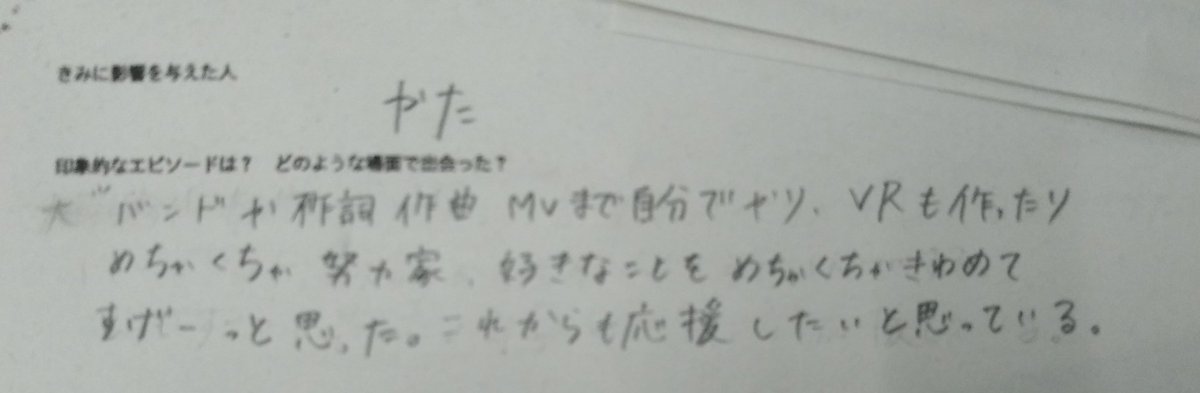 きみに影響を与えた人
やた
印象的なエピソードは? どのような場面で出会った?
バンドや作詞 作曲 MVまで自分でやり、VRも作ったり
めちゃくちゃ努力家、好きなことをめちゃくちゃきわめて
すげーっと思った。これからも応援したいと思っている。